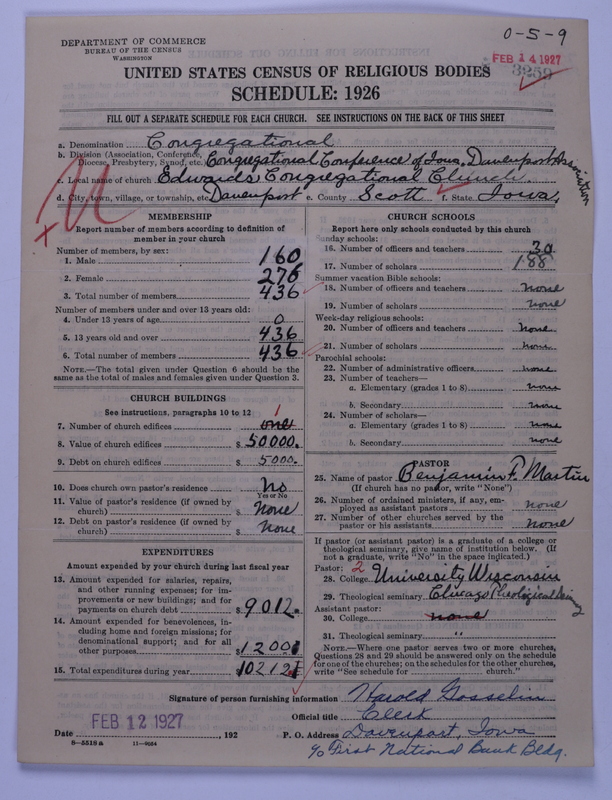 0-5-9
DEPARTMENT OF COMMERCE
BUREAU OF THE CENSUS
WASHINGTON
FEB 14 1927
3259
UNITED STATES CENSUS OF RELIGIOUS BODIES
SCHEDULE: 1926
FILL OUT A SEPARATE SCHEDULE FOR EACH CHURCH. SEE INSTRUCTIONS ON THE BACK OF THIS SHEET
a. Denomination Congregational
b. Division (Association, Conference, Diocese, Presbytery, Synod, etc. Congregational Conference of Iowa, Davenport Association
c. Local name of church Edwards Congregational Church
d. City, town, village, or township, etc. Davenport e. County Scott f. State Iowa
MEMBERSHIP
Report number of members according to definition of member in your church
Number of members, by sex:
1. Male 160
2. Female 276
3. Total number of members 436
Number of members under and over 13 years old:
4. Under 13 years of age 0
5. 13 years old and over 436
6. Total number of members 436
NOTE.—The total given under Question 6 should be the same as the total of males and females given under Question 3.
CHURCH BUILDINGS
See instructions, paragraphs 10 to 12
7. Number of church edifices one 1
8. Value of church edifices $ 50000.
9. Debt on church edifices $ 5000.
10. Does church own pastor's residence No
Yes or No
11. Value of pastor's residence (if owned by church) $ None
12. Debt on pastor's residence (if owned by church) $ None
EXPENDITURES
Amount expended by your church during last fiscal year
13. Amount expended for salaries, repairs, and other running expenses; for improvements or new buildings; and for payments on church debt $ 9012.
14. Amount expended for benevolences, including home and foreign missions; for denominational support; and for all other purposes $ 1200
15. Total expenditures during year $ 10212
CHURCH SCHOOLS
Report here only schools conducted by this church
Sunday schools:
16. Number of officers and teachers 30
17. Number of scholars 188
Summer vacation Bible schools:
18. Number of officers and teachers none
19. Number of scholars none
Week-day religious schools:
20. Number of officers and teachers none
21. Number of scholars none
Parochial schools:
22. Number of administrative officers none
23. Number of teachers—
a. Elementary (grades 1 to 8) none
b. Secondary none
24. Number of scholars—
a. Elementary (grades 1 to 8) none
b. Secondary none
PASTOR
25. Name of pastor Benjamin F. Martin
(If church has no pastor, write "None")
26. Number of ordained ministers, if any, employed as assistant pastors none
27. Number of other churches served by the pastor or his assistants none
If pastor (or assistant pastor) is a graduate of a college or theological seminary, give name of institution below. (If not a graduate, write "No" in the space indicated.)
Pastor: 2
28. College University Wisconsin
29. Theological seminary Chicago Theological Seminary
Assistant pastor:
30. College none
31. Theological seminary "
NOTE.—Where one pastor serves two or more churches, Questions 28 and 29 should be answered only on the schedule for one of the churches; on the schedules for the other churches, write "See schedule for church."
Signature of person furnishing information Harold Gosselin
Official title Clerk
FEB 12 1927
Date , 192
P. O. Address Davenport, Iowa
8-5518a 11-9064
c/o First National Bank Bldg.